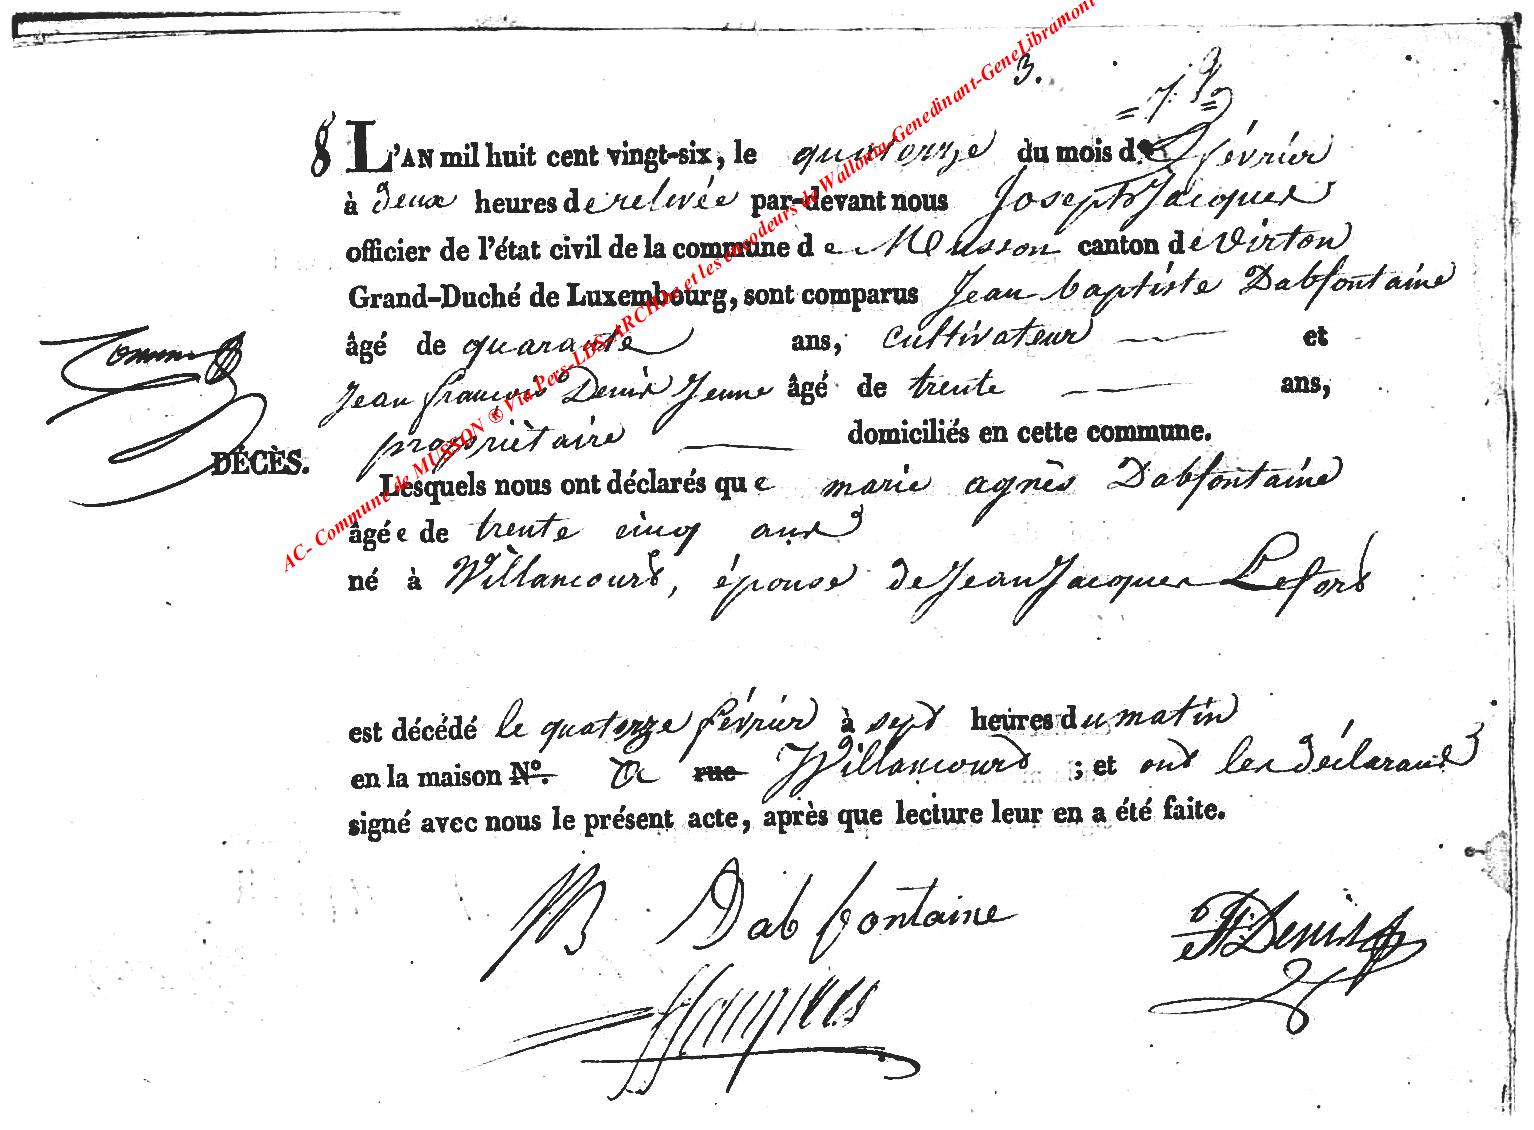 3.
8 L'AN mil huit cent vingt-six, le quatorze du mois de février
à deux heures de relevée par-devant nous Joseph Jacques
officier de l'état civil de la commune de Musson canton de Virton
Grand-Duché de Luxembourg, sont comparus Jean baptiste Dabfontaine
âgé de quarante ans, cultivateur et
Jean françois Denis Jeune âgé de trente ans,
propriètaire domiciliés en cette commune.
DÉCÈS.
Lesquels nous ont déclarés que marie agnès Dabfontaine
âgée de trente cinq ans
né à Willancourt, épouse de Jean Jacques Lefort
est décédé le quatorze février à sept heures du matin
en la maison N°. De rue Willancourt ; et ont les déclarans
signé avec nous le présent acte, après que lecture leur en a été faite.
JB Dabfontaine
JF Denis
JJacques
AC- Commune de MUSSON ® Via Pers-LDS-ARCHive et les encodeurs de Wallonia-Genedinant-GeneLibramont